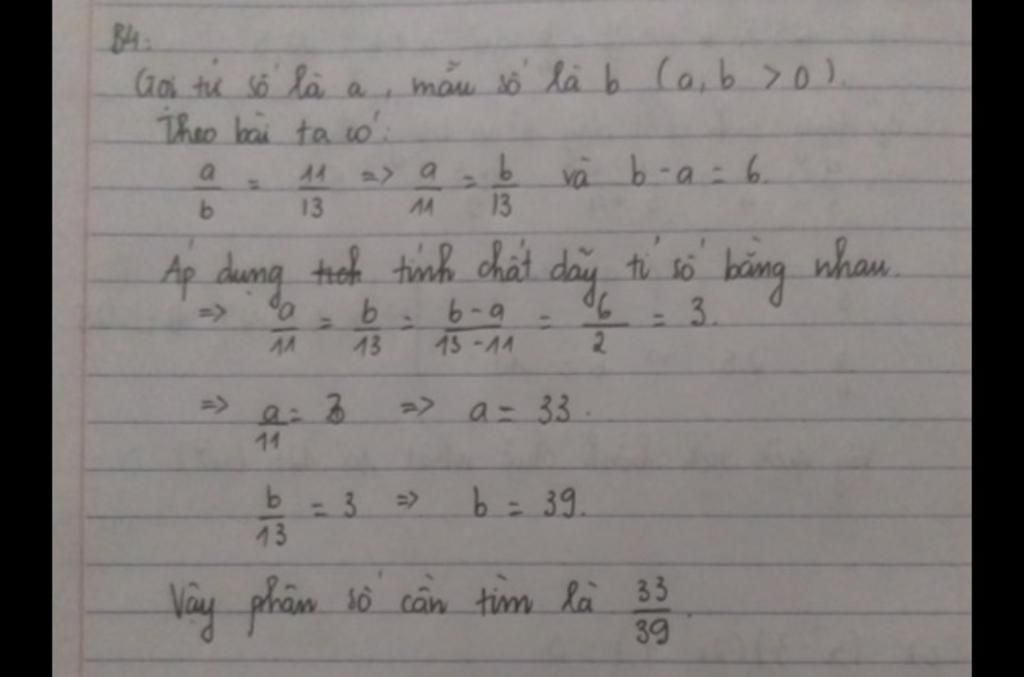 B4:
Gọi tử số là a, mẫu số là b (a, b > 0).
Theo bài ta có:
a/b = 11/13 => a/11 = b/13 và b - a = 6.
Áp dụng tính chất dãy tỉ số bằng nhau.
=> a/11 = b/13 = b-a/13-11 = 6/2 = 3.
=> a/11 = 3 => a = 33.
b/13 = 3 => b = 39.
Vậy phân số cần tìm là 33/39.